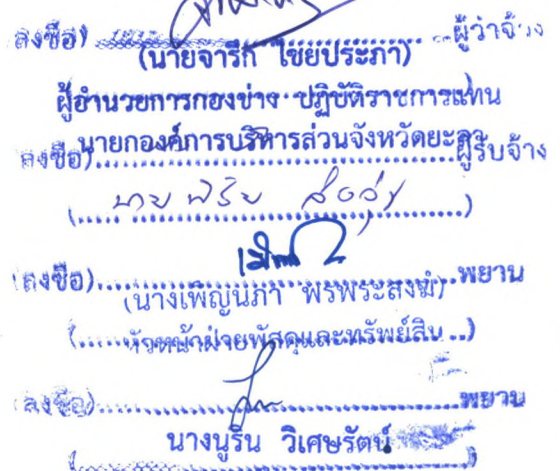 (ลงชื่อ)........................................ผู้ว่าจ้าง
(นายจารึก ไชยประภา)
ผู้อำนวยการกองช่าง ปฏิบัติราชการแทน
นายกองค์การบริหารส่วนจังหวัดยะลา
(ลงชื่อ)........................................ผู้รับจ้าง
(.....นาย.....)
(ลงชื่อ)........................................พยาน
(นางเพ็ญนภา พรพระสงฆ์)
(.....หัวหน้าฝ่ายพัสดุและทรัพย์สิน...)
(ลงชื่อ)........................................พยาน
นางนูรีน วิเศษรัตน์